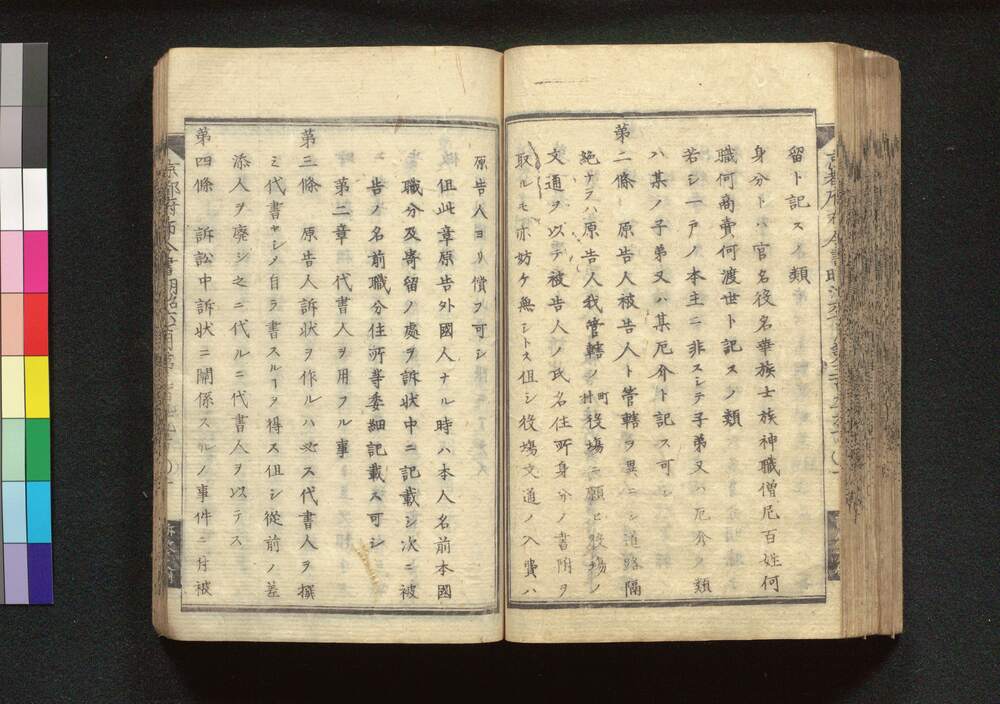 留ト記スノ類
身分トハ官名役名華族士族神職僧尼百姓何
職何商賣何渡世ト記スノ類
若シ一戸ノ本主ニ非スシテ子弟又ハ厄介ノ類
ハ某ノ子弟又ハ某厄介ト記ス可シ
第二條 原告人被告人ト管轄ヲ異ニシ道路隔
絶ナラハ原告人我管轄ノ町村役場ニ願ヒ役場ノ
文通ヲ以テ被告人ノ氏名住所身分ノ書附ヲ
取ルモ亦妨ケ無シトス但シ役場文通ノ入費ハ
原告人ヨリ償フ可シ
但此章原告外國人ナル時ハ本人名前本國
職分及寄留ノ處ヲ訴状中ニ記載シ次ニ被
告ノ名前職分住所等委細記載ス可シ
第二章 代書人ヲ用フル事
第三條 原告人訴状ヲ作ルハ必ス代書人ヲ撰
ミ代書セシメ自ラ書スルヿヲ得ス但シ從前ノ差
添人ヲ廃シ之ニ代ルニ代書人ヲ以テス
第四條 訴訟中訴状ニ關係スルノ事件ニ付被